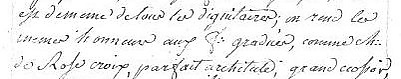 est de meme de tous les dignitaires; on rend les
memes honneurs aux gradués, comme ch.
de Rose croix, parfait architecte, grand ecossois,